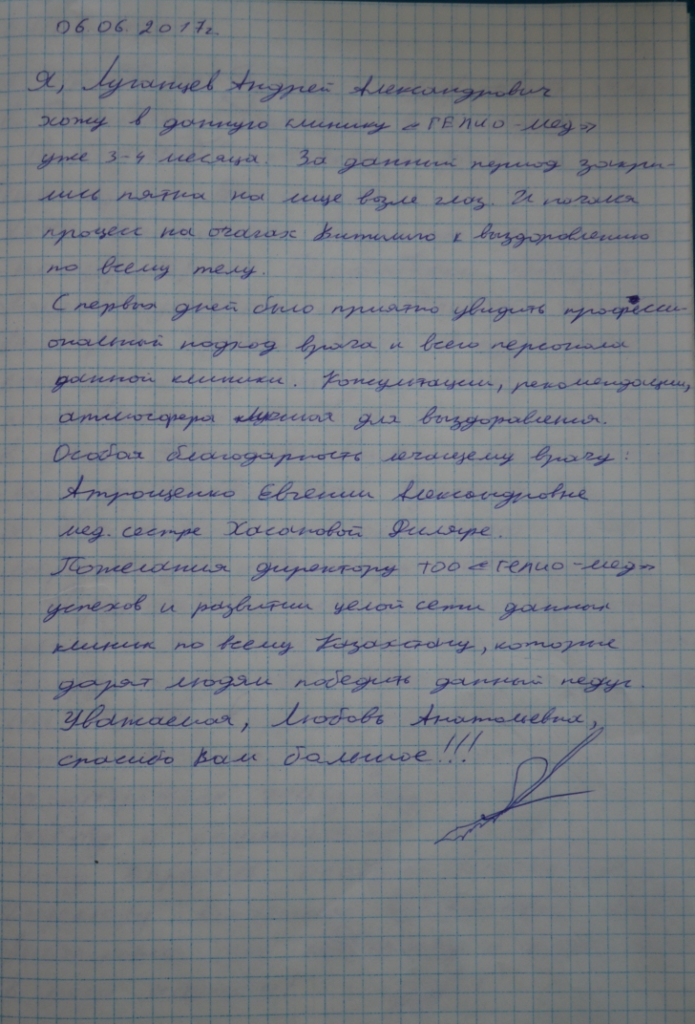 06.06.2017г.
Я, Луганцев Андрей Александрович
хожу в данную клинику «ГЕЛИО-мед»
уже 3-4 месяца. За данный период закры-
лись пятна на лице возле глаз. И начался
процесс на очагах Витилиго к выздоровлению
по всему телу.
С первых дней было приятно увидить професси-
ональный подход врача и всего персонала
данной клиники. Консультации, рекомендации,
атмосфера для выздоровления.
Особая благодарность лечащему врачу:
Атрощенко Евгении Александровне
мед. сестре Хасановой Диляре.
Пожелания директору ТОО «ГЕЛИО-мед»
успехов и развитии целой сети данных
клиник по всему Казахстану, которые
дарят людям победить данный недуг.
Уважаемая, Любовь Анатольевна,
спасибо Вам большое!!!